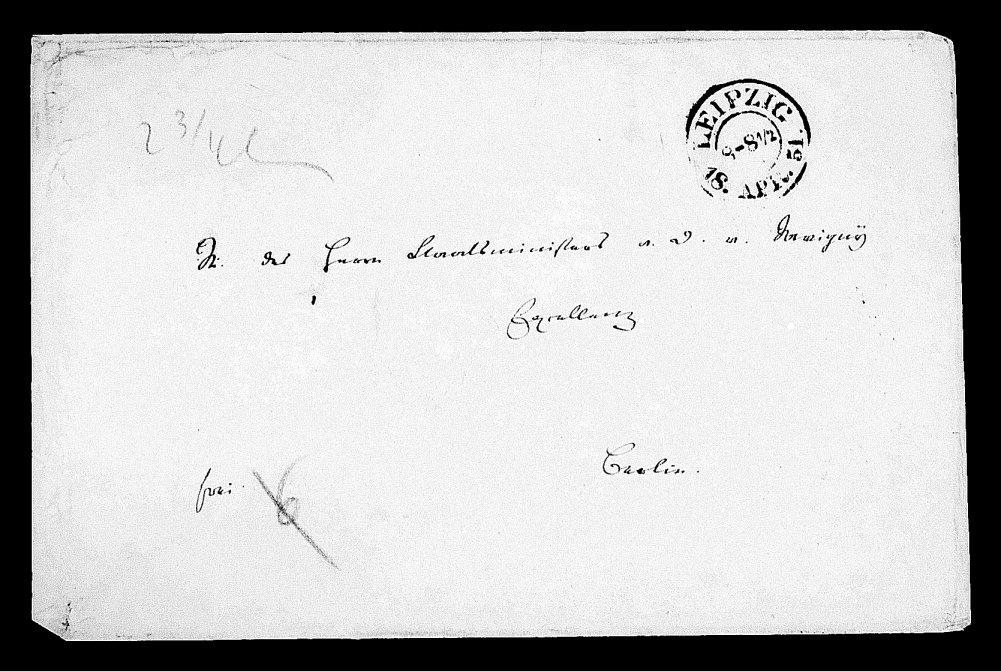 LEIPZIG
8-8 1/2
18. APR.
2 3/4
Sr. des Herrn Staatsministers a. D. v. Savigny
Excellenz
Berlin.
frei.
6